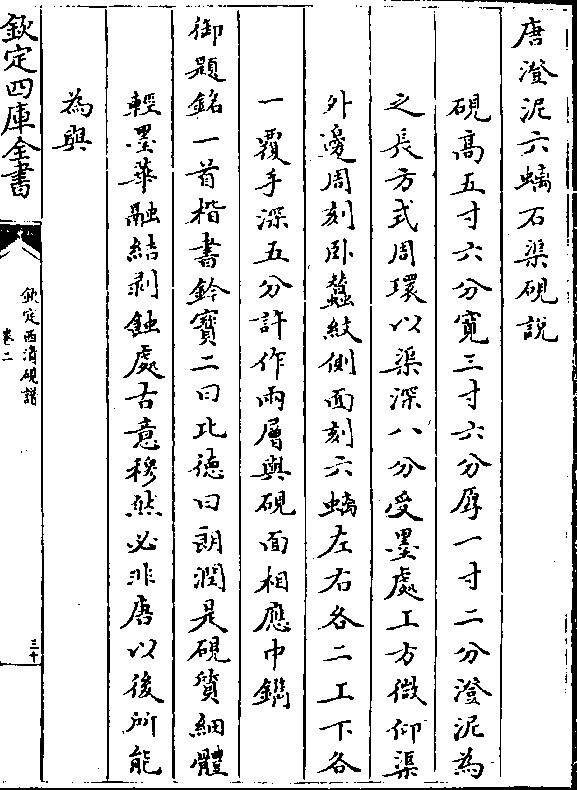 唐澄泥六螭石渠硯說
硯高五寸六分寬三寸六分厚一寸二分澄泥為
之長方式周環以渠深八分受墨處上方微仰渠
外邊周刻卧蠶紋側面刻六螭左右各二上下各
一覆手深五分許作兩層與硯面相應中鐫
御題銘一首楷書鈐寶二曰比德曰朗潤是硯質細體
輕墨華融結剥蝕處古意穆然必非唐以後所能
為與
欽定四庫全書
欽定西清硯譜
卷二
三十